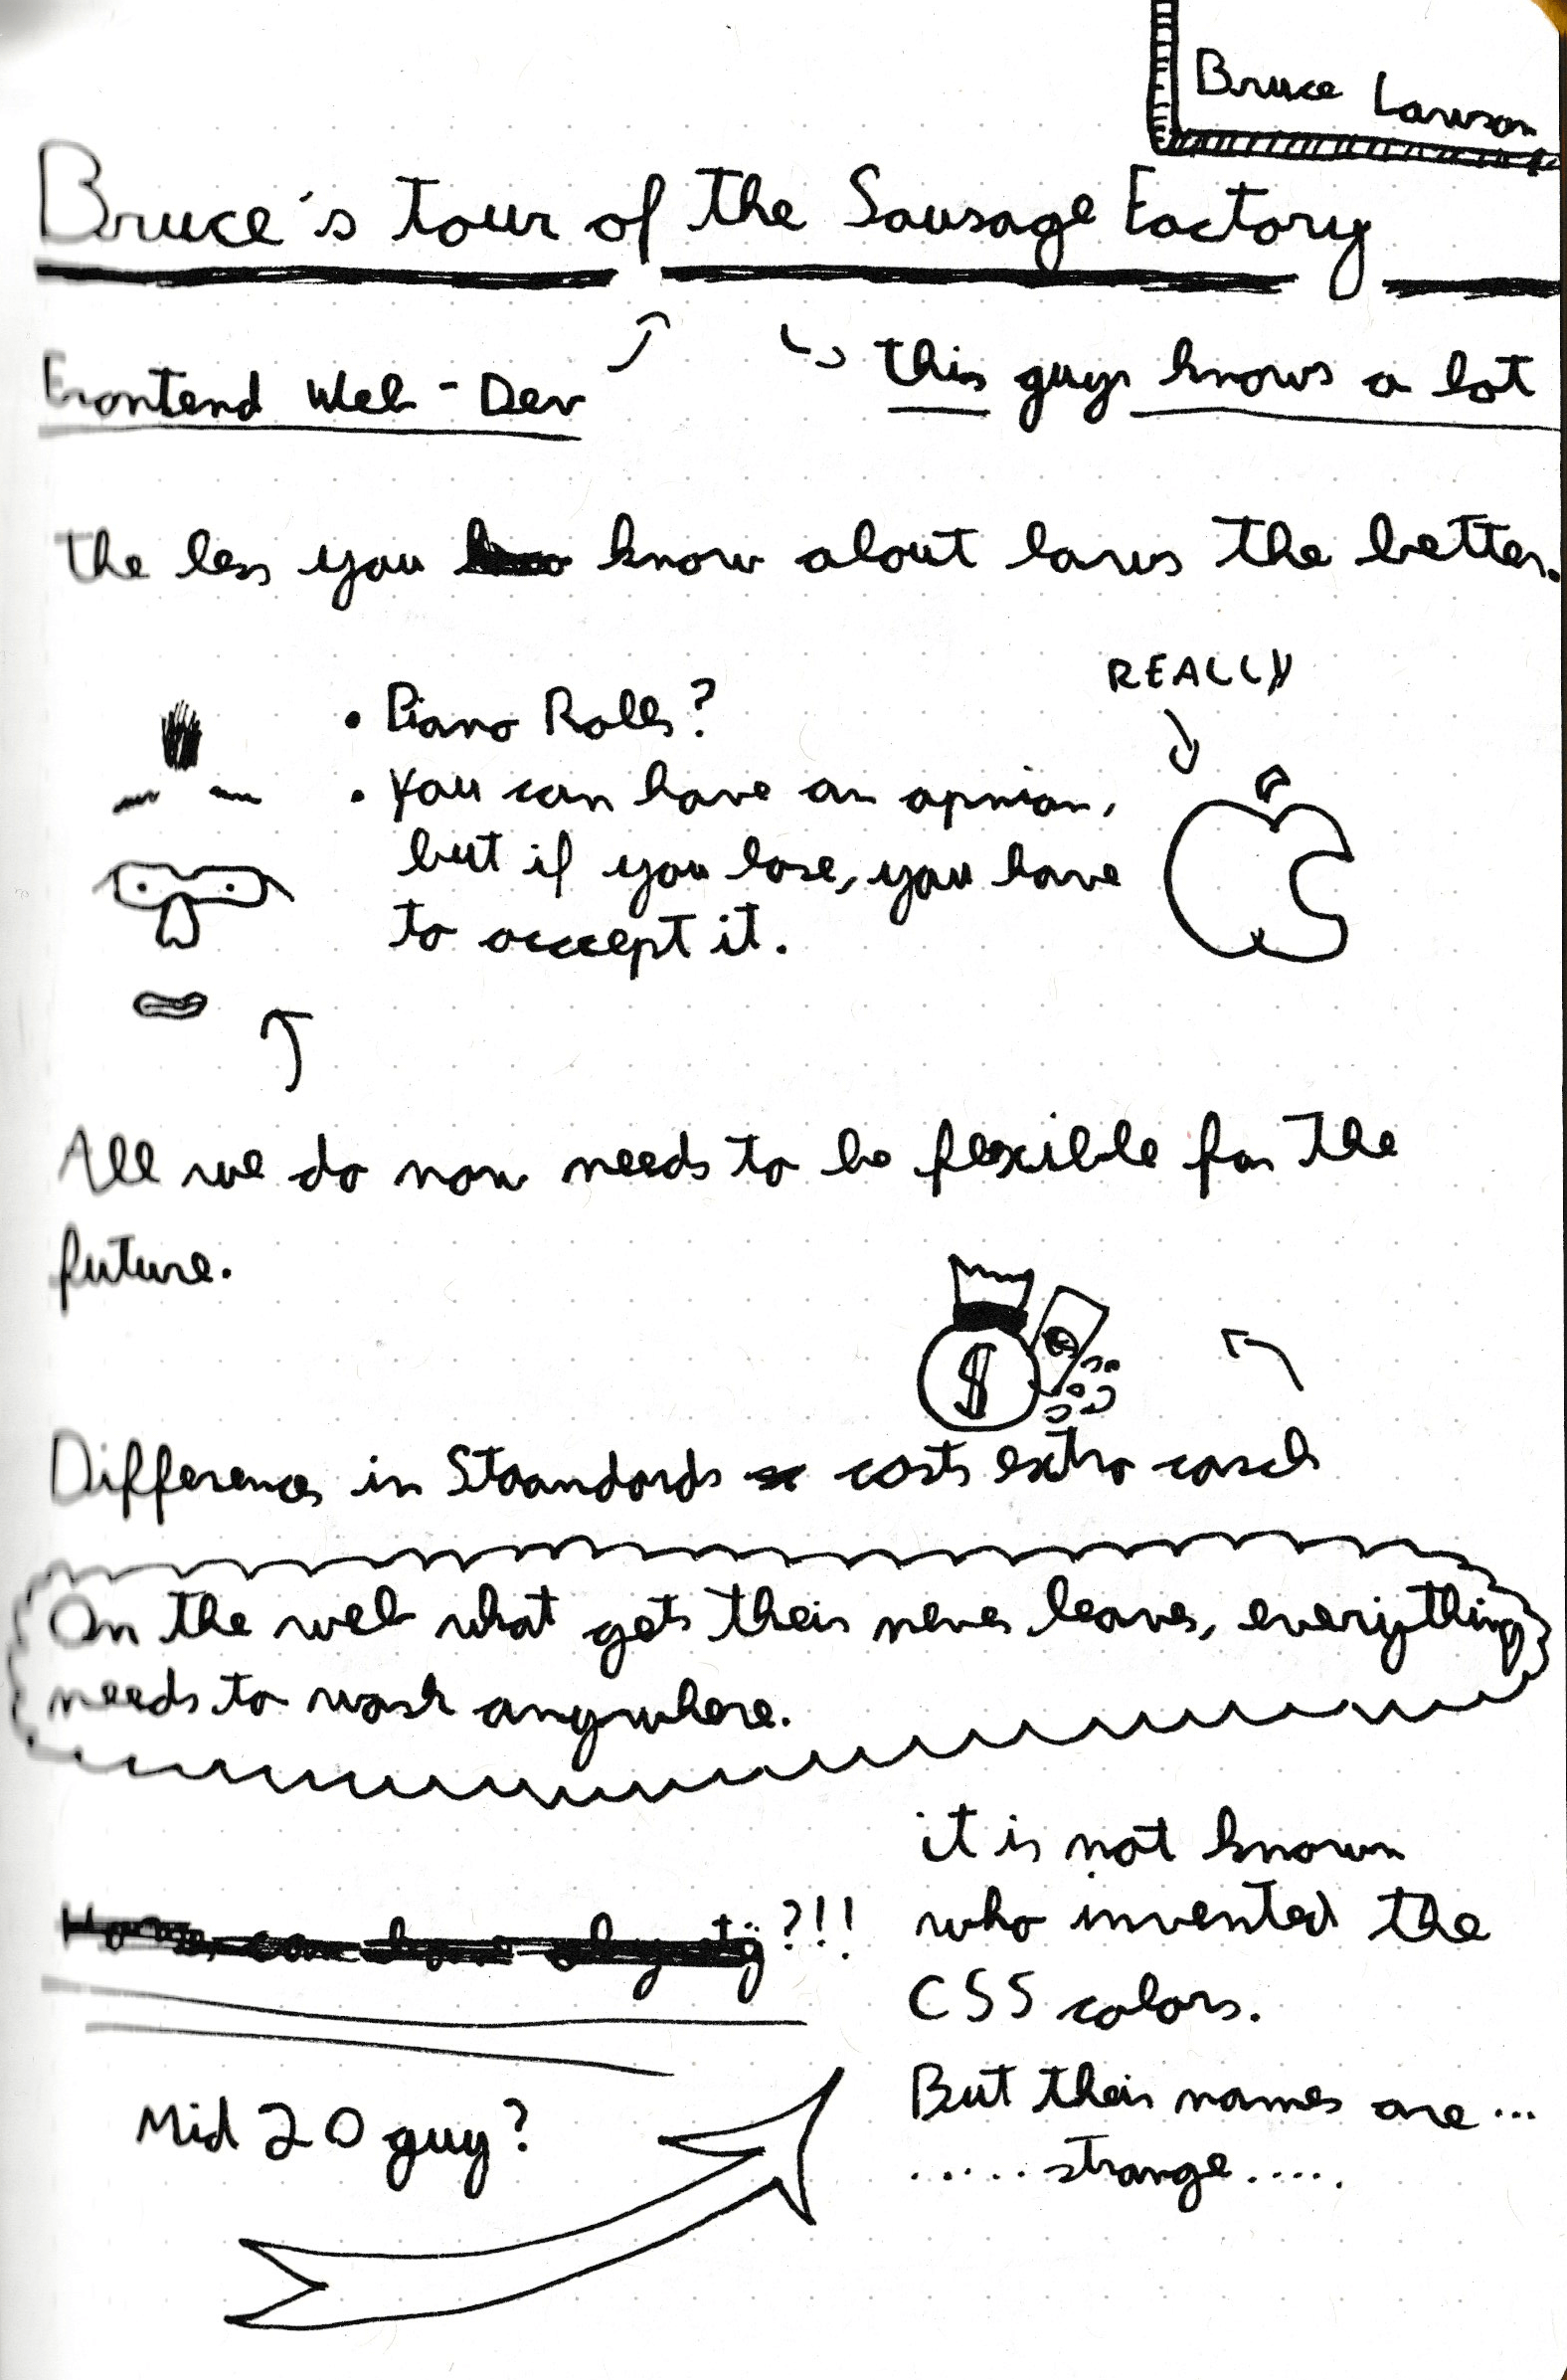 Bruce Lawson
Bruce's tour of the Sausage Factory
Frontend Web-Dev
this guy knows a lot
the less you know about laws the better.
REALLY
• Piano Rolls?
• You can have an opinion,
but if you lose, you have
to accept it.
All we do now needs to be flexible for the
future.
$
Difference in Staandards costs extra cash
On the web what gets their never leaves, everything
needs to work anywhere.
?!!
it is not known
who invented the
CSS colors.
But their names are...
......strange.....
Mid 20 guy?